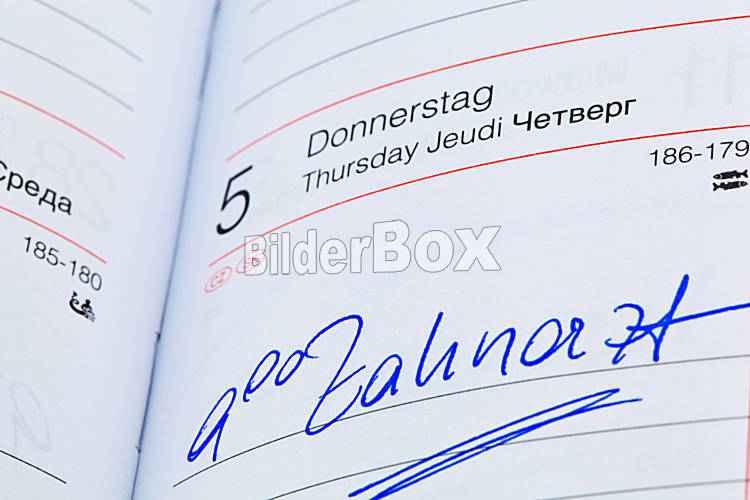 Среда
185-180
Donnerstag
5 Thursday Jeudi Четверг
186-179
CZ SK
BilderBox
9⁰⁰ Zahnarzt